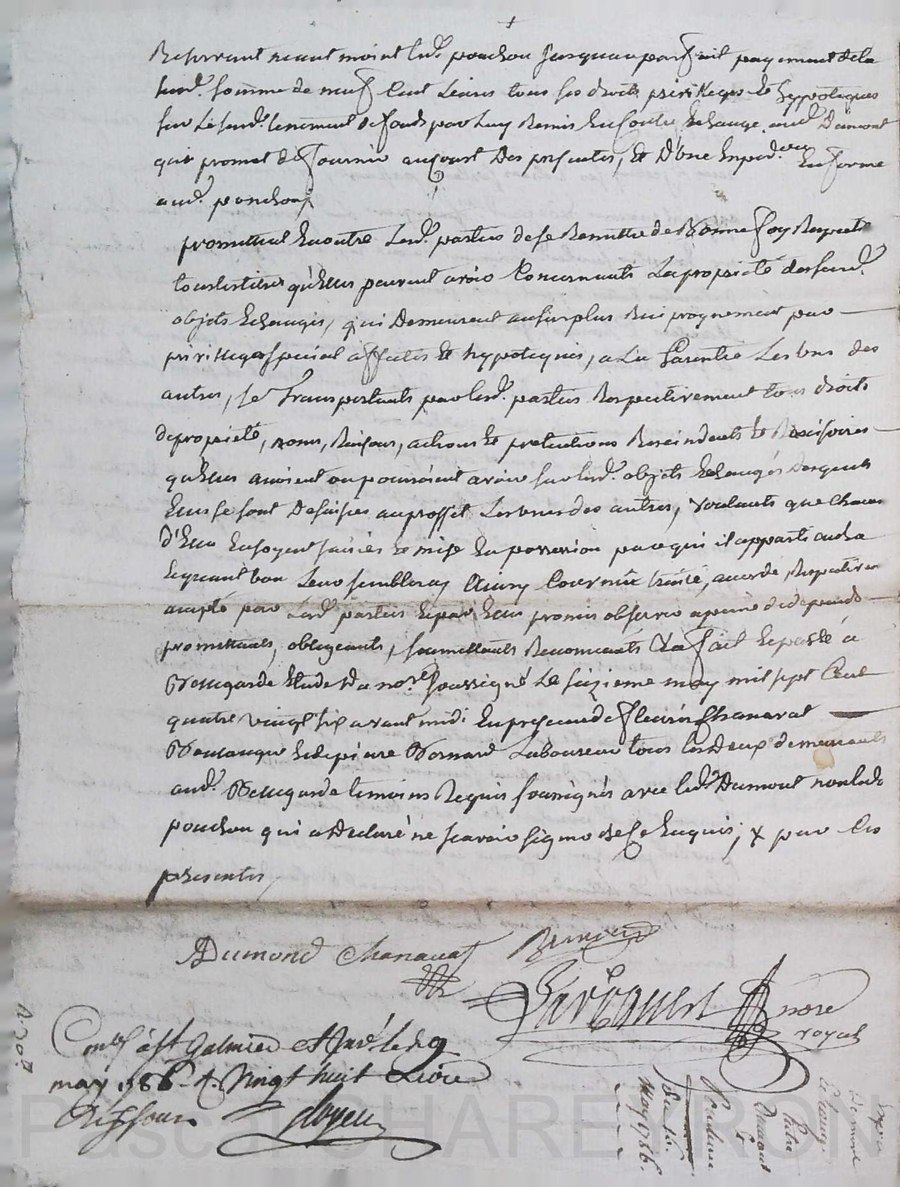 Reservant neantmoint led. ponchon jusquau parfait payement de la
susd. somme de neuf Cent Livres tous ses droits privilleges Et hyppoteques
sur Le susd. tenement de fonds par Luy Remis En Contre Echange aud. Dumont
qui promet de fournir au Court Des presentes, Et D'une Exped.on En forme
aud. ponchon
promettent En outre Lesd. parties de se Remettre de Bonne foy Respect.
tous les titres qu'Elles peuvent avoir Concernants La propriété des susd.
objets Echangés, qui Demeurent au surplus Reciproquement par
privillege special affectés Et hypotequés, a La Garentie Les uns des
autres, se Transportants par lesd. parties Respectivement tous droits
de propriété, noms, Raisons, actions Et pretentions Rescindents Et Rescisoires
qu'Elles avoient ou pouroient avoir sur lesd. objets Echangés Desquels
Elles se sont Desaisies au proffit Les unes des autres, voulants que chacune
d'Elles En soyent saisies Et mise En possession par qui il appartiendra
Et quant bon Leur semblera, Ainsy Convenu traité, accordé, Respectivem
accepté par Lesd. parties Et par Elles promis observer a peine de depends
promettants, obligeants, soumettants Renonceants &a fait Et passé a
Bellegarde Etude Du nore. soussigné Le seizieme may mil sept Cent
quatre vingt six avant midi En presence de fleury Chanavat
Boulanger Et de pierre Bernard Laboureur tous Les Deux demeurants
aud. Bellegarde temoins Requis soussignés avec led. Dumont non led.
ponchon qui a Declaré ne scavoir signer de ce Enquis; & par Les
presentes
Dumond Chanavat Bernard
nore
royal
Conlé à St Galmier Et Juré le
may 1786 R. Vingt huit Livres
may 1786.
Dumont
Echange
Entre